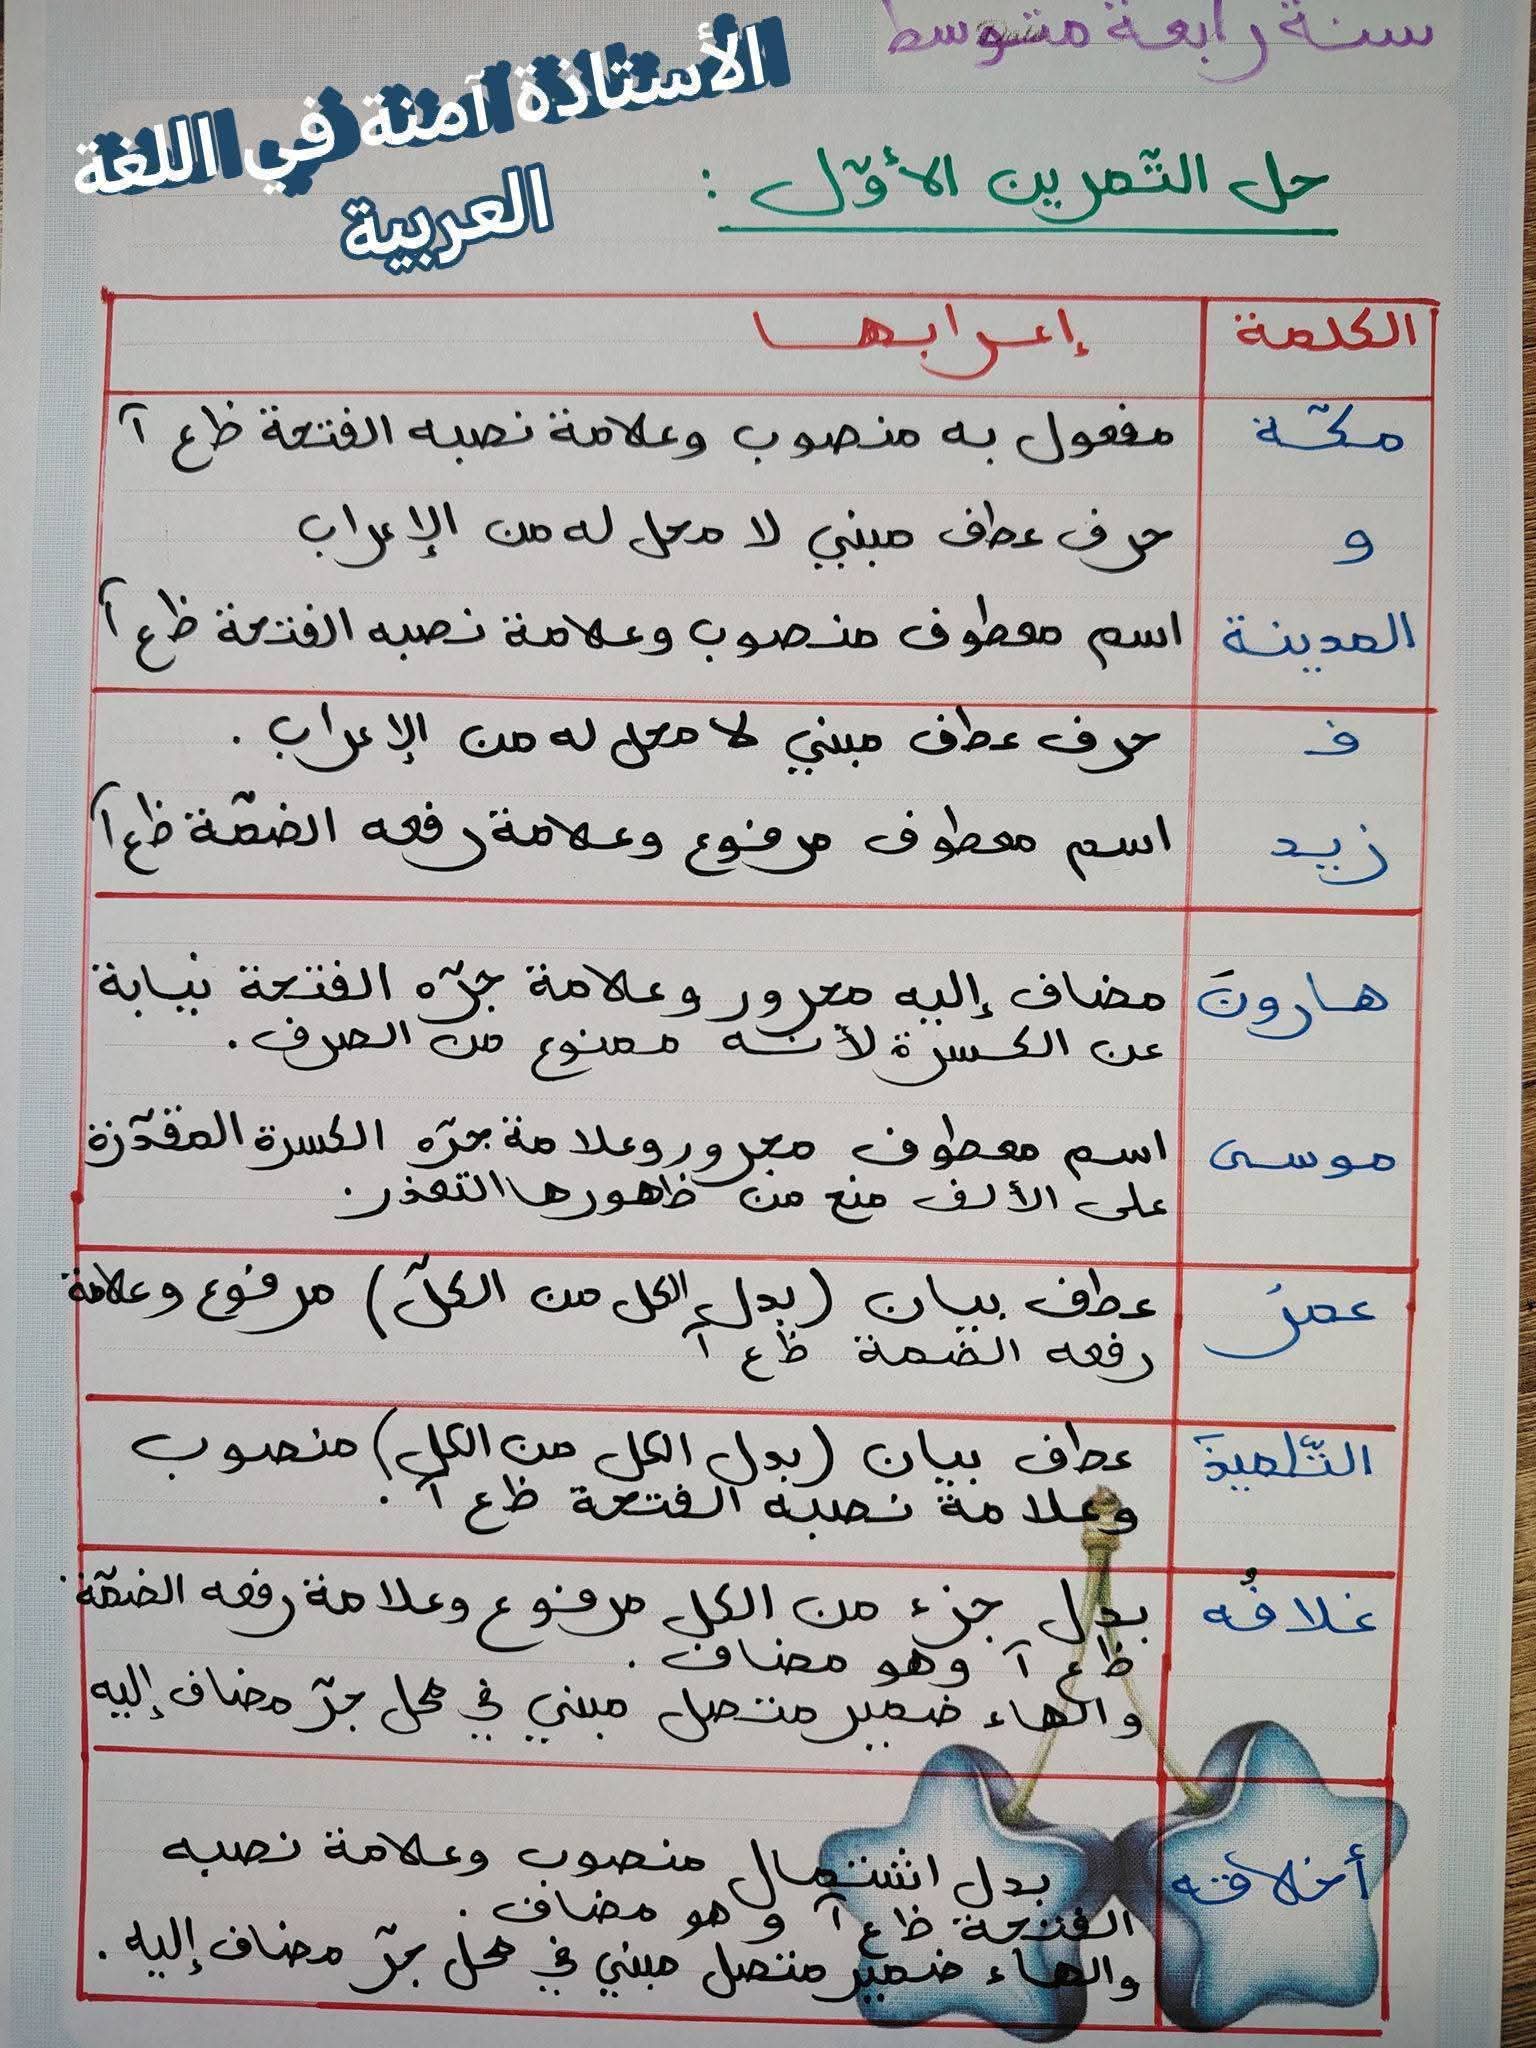 سنة رابعة متوسط
الأستاذة آمنة في اللغة
العربية
حل التّمرين الأوّل :
الكلمة إعرابها
مكّة مفعول به منصوب وعلامة نصبه الفتحة ظ ع آ
و حرف عطف مبني لا محل له من الإعراب
المدينة اسم معطوف منصوب وعلامة نصبه الفتحة ظ ع آ
ف حرف عطف مبني لا محل له من الإعراب .
زيد اسم معطوف مرفوع وعلامة رفعه الضمّة ظ ع آ
هارونَ مضاف إليه مجرور وعلامة جرّه الفتحة نيابة
عن الكسرة لأنّه ممنوع من الصرف .
موسى اسم معطوف مجرور وعلامة جرّه الكسرة المقدّرة
على الألف منع من ظهورها التعذر .
عمرُ عطف بيان (بدل الكل من الكلّ) مرفوع وعلامة
رفعه الضمة ظ ع آ
التّلميذَ عطف بيان (بدل الكل من الكل) منصوب
وعلامة نصبه الفتحة ظ ع آ .
غلافُه بدل جزء من الكل مرفوع وعلامة رفعه الضمّة
ظ ع آ وهو مضاف .
والهاء ضمير متصل مبني في محل جرّ مضاف إليه .
أخلاقه بدل اشتمال منصوب وعلامة نصبه
الفتحة ظ ع آ وهو مضاف .
والهاء ضمير متصل مبني في محل جرّ مضاف إليه .